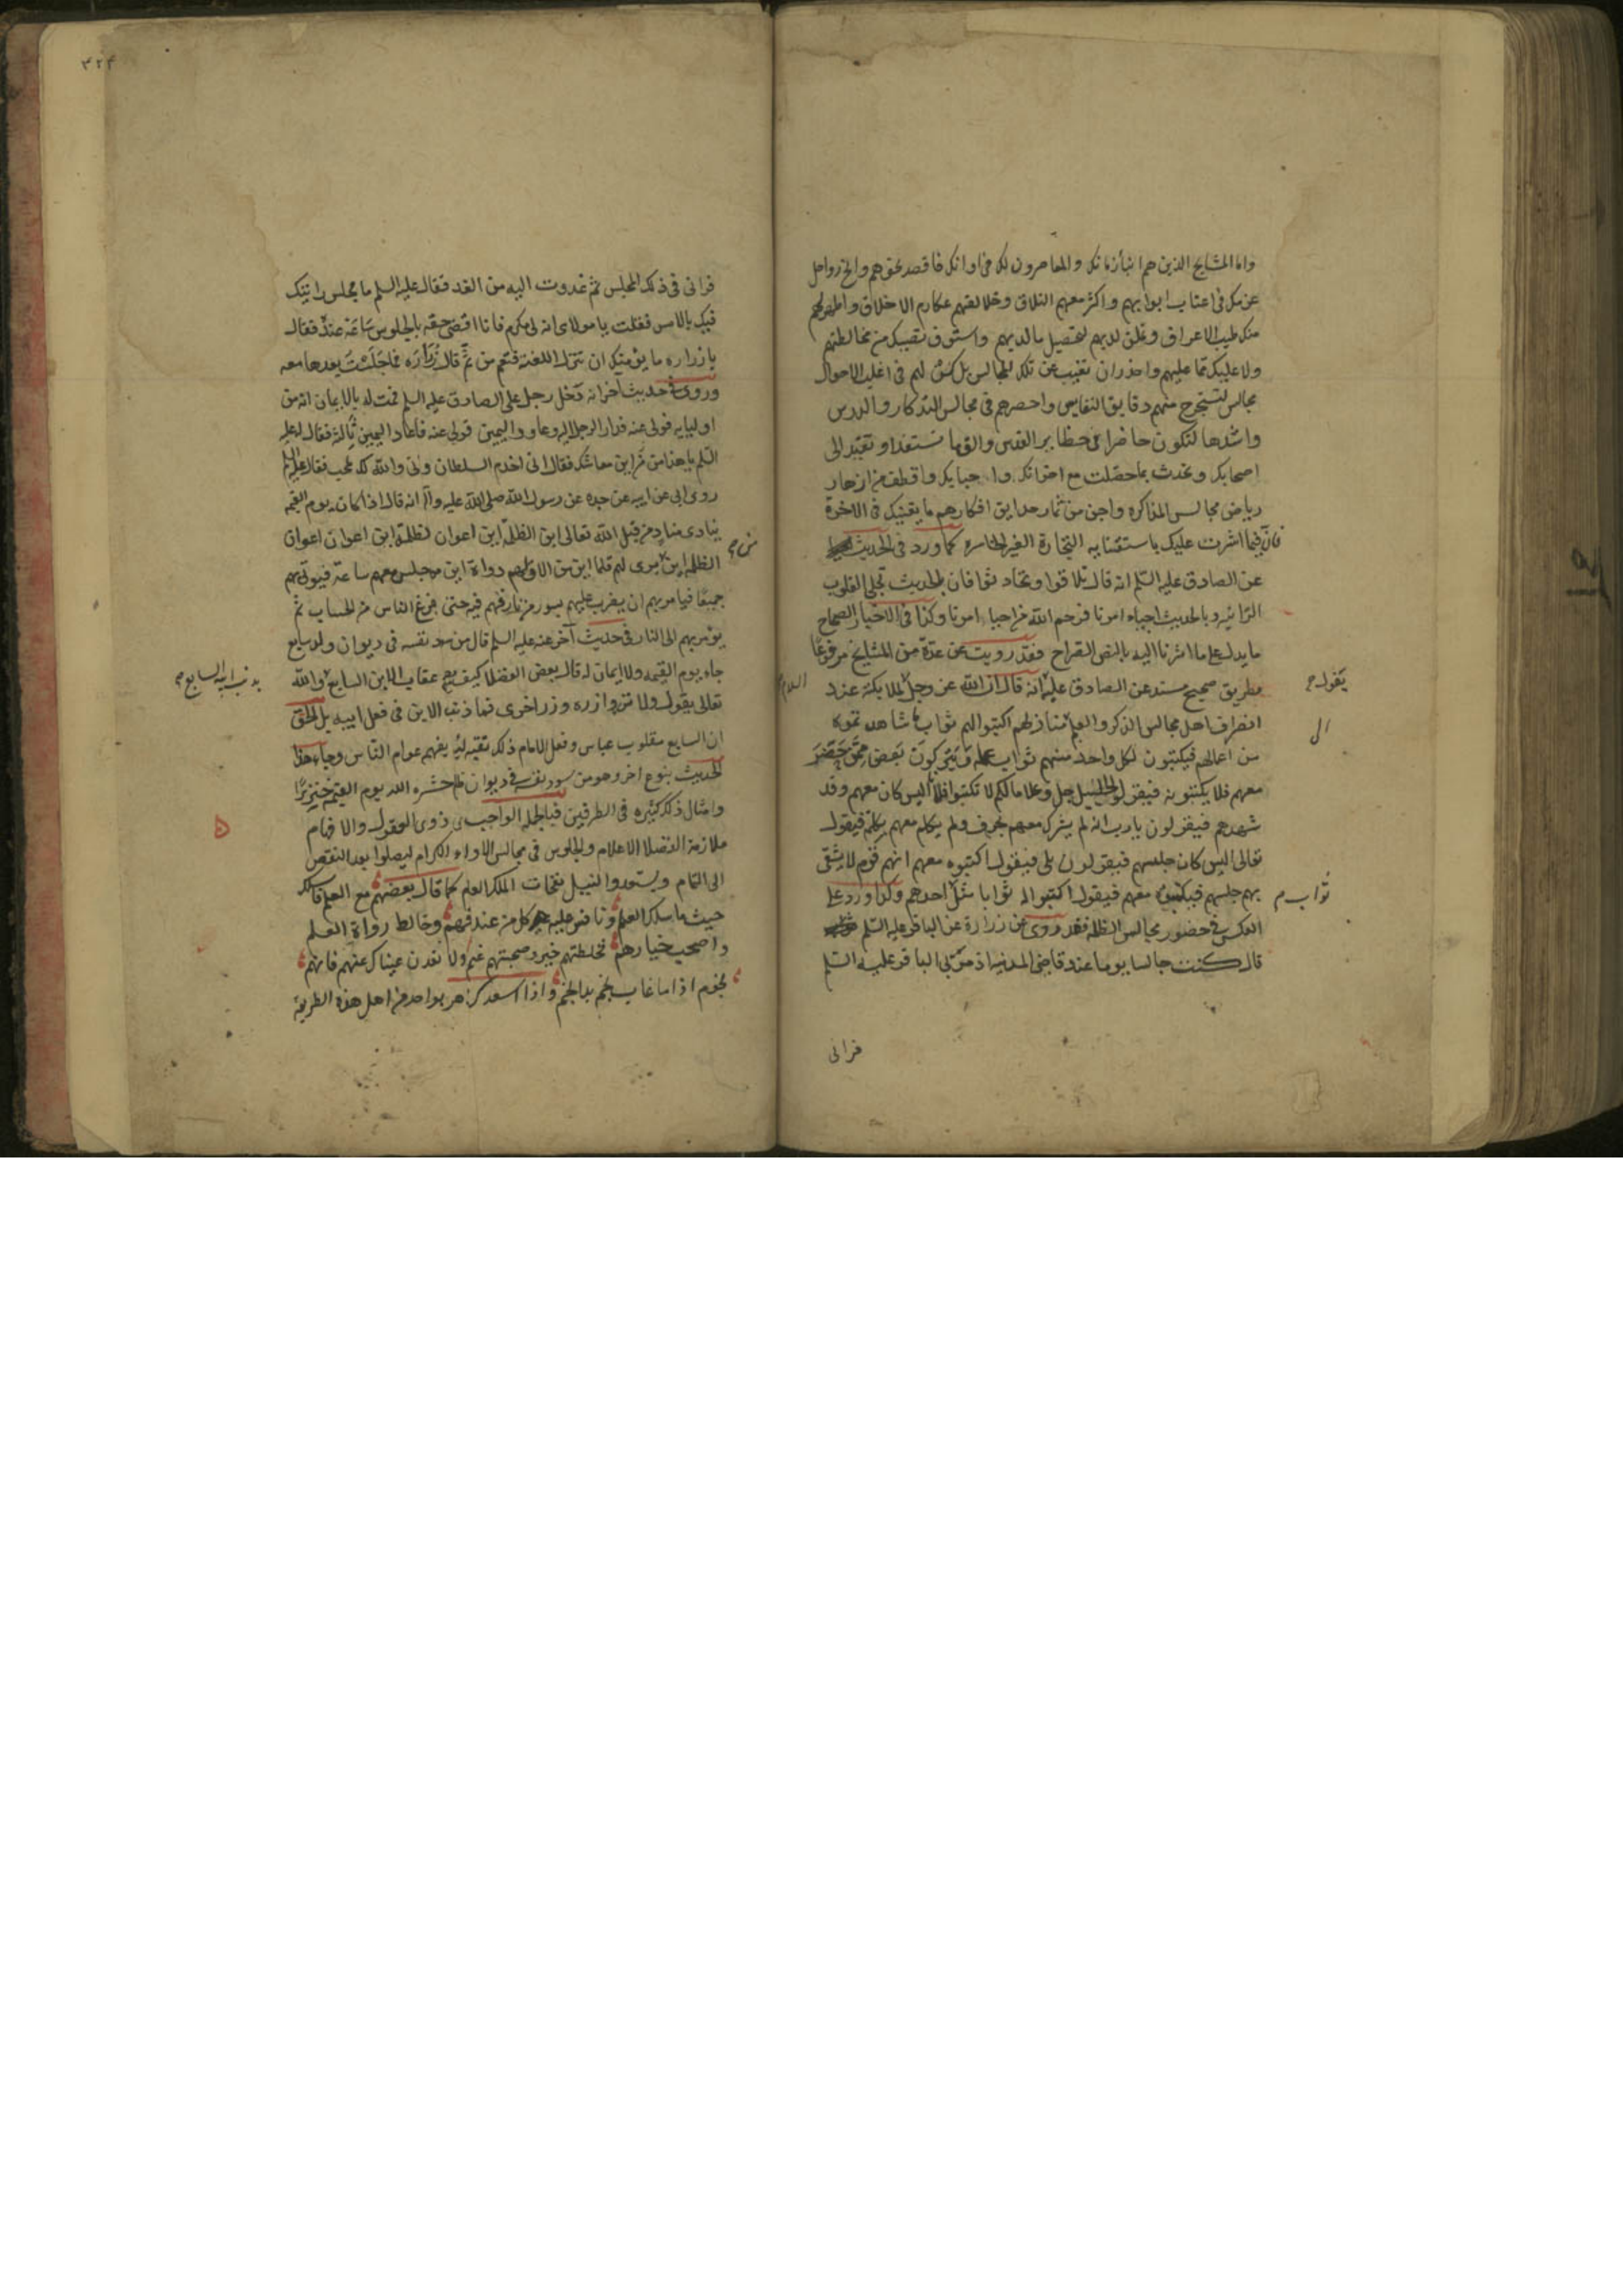 واما المشايخ الذين هم ابناء زمانك والمعاصرون لك في اوانك فاقصد نحوهم وانخ رواحل
عزمك في اعتاب ابوابهم واكثر معهم التلاق وخالقهم بمكارم الاخلاق واظهر لهم
منك طيب الاعراق وتملق لديهم لتحصيل ما لديهم واستوف نصيبك من مخالطتهم
ولا عليك مما عليهم واحذر ان تغيب عن تلك المجالس بل كن لهم في اغلب الاحوال
مجالس لتستخرج منهم دقايق النفايس واحضرهم في مجالس التذكار والدرس
واشدها لتكون حاضرا في حظاير القدس والق ما تستفد او تقيد الى
اصحابك وتحدث بما حصلت مع اخوانك و احبابك واقطف من ازهار
رياض مجالس المذاكره واجن من ثمار حدايق افكارهم ما يقنيك في الاخرة
فان فيما اشرت عليك باستقنا به التجارة الغير الخاسره كما ورد في الحديث
عن الصادق عليه السلم انه قال تلاقوا وتحادثوا فان بالحديث تجلى القلوب
الرائنه وبالحديث احياء امرنا فرحم الله من احيا امرنا وكذا في الاخبار الصحاح
ما يدل على ما اشرنا اليه بالنص القراح فقد رويت عن عدة من المشايخ مرفوعا
بطريق صحيح مسند عن الصادق عليه السلام انه قال ان الله عز وجل يقول لملايكته عند
انصراف اهل مجالس الذكر والعلم الى منازلهم اكتبوا لهم ثواب ما شاهدتموه
من اعمالهم فيكتبون لكل واحد منهم ثواب عمله ويتركون بعض من حضر
معهم فلا يكتبونه فيقول الجليل جل وعلا ما لكم لا تكتبوا فلانا اليس كان معهم وقد
شهدهم فيقولون يا رب انه لم يشرك معهم بحرف ولم يكلم معهم بكلمة فيقول
تعالى اليس كان جليسهم فيقولون بلى فيقول اكتبوه معهم انهم قوم لا يشقى
بهم جليسهم فيكتبوه معهم فيقول اكتبوا له ثوابا مثل ثواب احدهم وكذا ورد على
العكس في حضور مجالس الظلمه فقد روى عن زرارة عن الباقر عليه السلم
قال كنت جالسا يوما عند قاضي المدينه اذ مر بي الباقر عليه السلم
فراني
٣٢٣
فراني في ذلك المجلس ثم غدوت اليه من الغد فقال عليه السلم ما مجلس رايتك
فيك بالامس فقلت يا مولاى انه لي مكرم فانا اقضي حقه بالجلوس ساعة عنده فقال
يا زراره ما يؤمنك ان تنزل اللعنة فتعم من ثم قال زرارة فما جلست بعدها معه
وروى في حديث آخر انه دخل رجل على الصادق عليه السلم فمت له بالايمان انه من
اوليايه فولى عنه فدار الرجل اليه وعاود اليمين فولى عنه فاعاد اليمين ثالثة فقال له عليه
السلم يا هذا من اين معاشك فقال اني اخدم السلطان واني والله لك محب فقال عليه السلم
روى ابي عن ابيه عن جده عن رسول الله صلى الله عليه وآله انه قال اذا كان يوم القيمه
ينادى مناد من قبل الله تعالى اين الظلمه اين اعوان الظلمة اين اعوان اعوان
الظلمه اين من برى لهم قلما اين من الاق لهم دواة اين من جلس معهم ساعة فيوتى بهم
جميعا فيامر بهم ان يضرب عليهم بسور من نار فهم فيه حتى يفرغ الناس من الحساب ثم
يؤمر بهم الى النار وفي حديث آخر عنه عليه السلم قال من سود نفسه في ديوان ولد سابع
جاء يوم القيمه ولا ايمان له قال بعض الفضلا كيف يصح عقاب الابن السابع بذنب ابيه السابع والله
تعالى يقول ولا تزر وازره وزر اخرى فما ذنب الابن في فعل ابيه بل الحق
ان السابع مقلوب عباس وفعل الامام ذلك تقيه لئلا يفهم عوام الناس وجاء هذا
الحديث بنوع اخر وهو من سود نفسه في ديوان ظلم حشره الله يوم القيمه خنزيرا
وامثال ذلك كثيره في الطرفين فبالجمله الواجب على ذوى العقول والافهام
ملازمة الفضلا الاعلام والجلوس في مجالس الاوداء الكرام ليصلوا بعد النقص
الى التمام ويستعدوا لنيل نفحات الملك العلام كما قال بعضهم مع العلم فاسلك
حيث ما سلك العلم وعنه فكاشف كل من عنده فهم وخالط رواة العلم
واصحب خيارهم فخلطتهم خير وصحبتهم غنم ولا تعدون عيناك عنهم فانهم
نجوم اذا ما غاب نجم بدا نجم واذا اسعدك الدهر بواحد من اهل هذه الطريقه